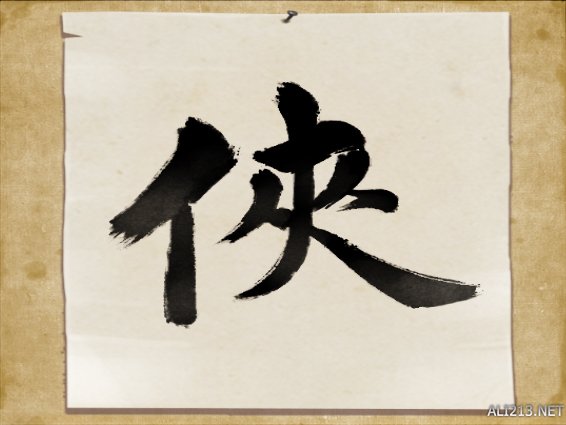 俠
ALI213.NET